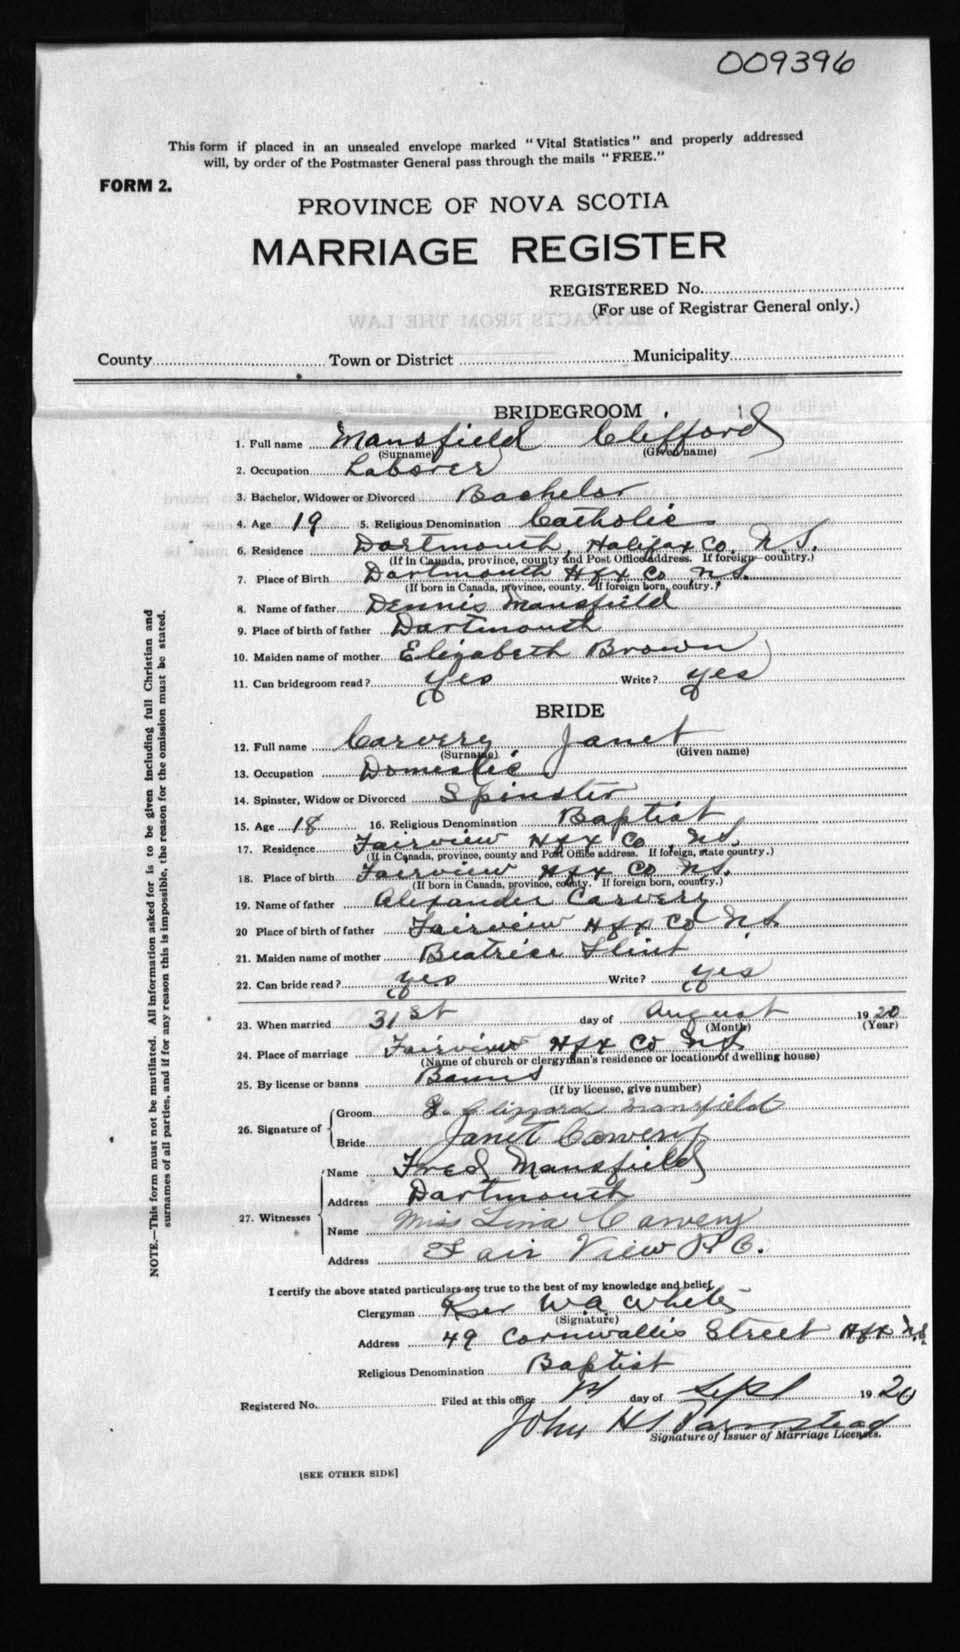 009396
This form if placed in an unsealed envelope marked "Vital Statistics" and properly addressed
will, by order of the Postmaster General pass through the mails "FREE."
FORM 2.
PROVINCE OF NOVA SCOTIA
MARRIAGE REGISTER
REGISTERED No.
(For use of Registrar General only.)
EXTRACTS FROM THE LAW
County Town or District Municipality
BRIDEGROOM
1. Full name Mansfield Clifford
(Surname) (Given name)
2. Occupation Laborer
3. Bachelor, Widower or Divorced Bachelor
4. Age 19 5. Religious Denomination Catholic
6. Residence Dartmouth Halifax Co. N.S.
(If in Canada, province, county and Post Office address. If foreign country.)
7. Place of Birth Dartmouth Hfx Co NS.
(If born in Canada, province, county. If foreign born, country.)
8. Name of father Dennis Mansfield
9. Place of birth of father Dartmouth
10. Maiden name of mother Elizabeth Brown
11. Can bridegroom read? yes Write? yes
BRIDE
12. Full name Carvery, Janet
(Surname) (Given name)
13. Occupation Domestic
14. Spinster, Widow or Divorced Spinster
15. Age 18 16. Religious Denomination Baptist
17. Residence Fairview Hfx Co NS.
(If in Canada, province, county and Post Office address. If foreign, state country.)
18. Place of birth Fairview Hfx Co NS.
(If born in Canada, province, county. If foreign born, country.)
19. Name of father Alexander Carvery
20 Place of birth of father Fairview Hfx Co N.S.
21. Maiden name of mother Beatrice Flint
22. Can bride read? yes Write? yes
23. When married 31st day of August 1920
(Month) (Year)
24. Place of marriage Fairview Hfx Co NS.
(Name of church or clergyman's residence or location of dwelling house)
25. By license or banns Banns
(If by license, give number)
26. Signature of Groom Mansfield
Bride Janet Carvery
27. Witnesses Name Fred Mansfield
Address Dartmouth
Name Miss Lina Carvery
Address Fair View P.O.
I certify the above stated particulars are true to the best of my knowledge and belief.
Clergyman Rev W A White
(Signature)
Address 49 Cornwallis Street Hfx N.S.
Religious Denomination Baptist
Registered No. Filed at this office day of Sept 1920
John H
Signature of Issuer of Marriage Licenses.
[SEE OTHER SIDE]
NOTE.—This form must not be mutilated. All information asked for is to be given including full Christian and
surnames of all parties, and if for any reason this is impossible, the reason for the omission must be stated.